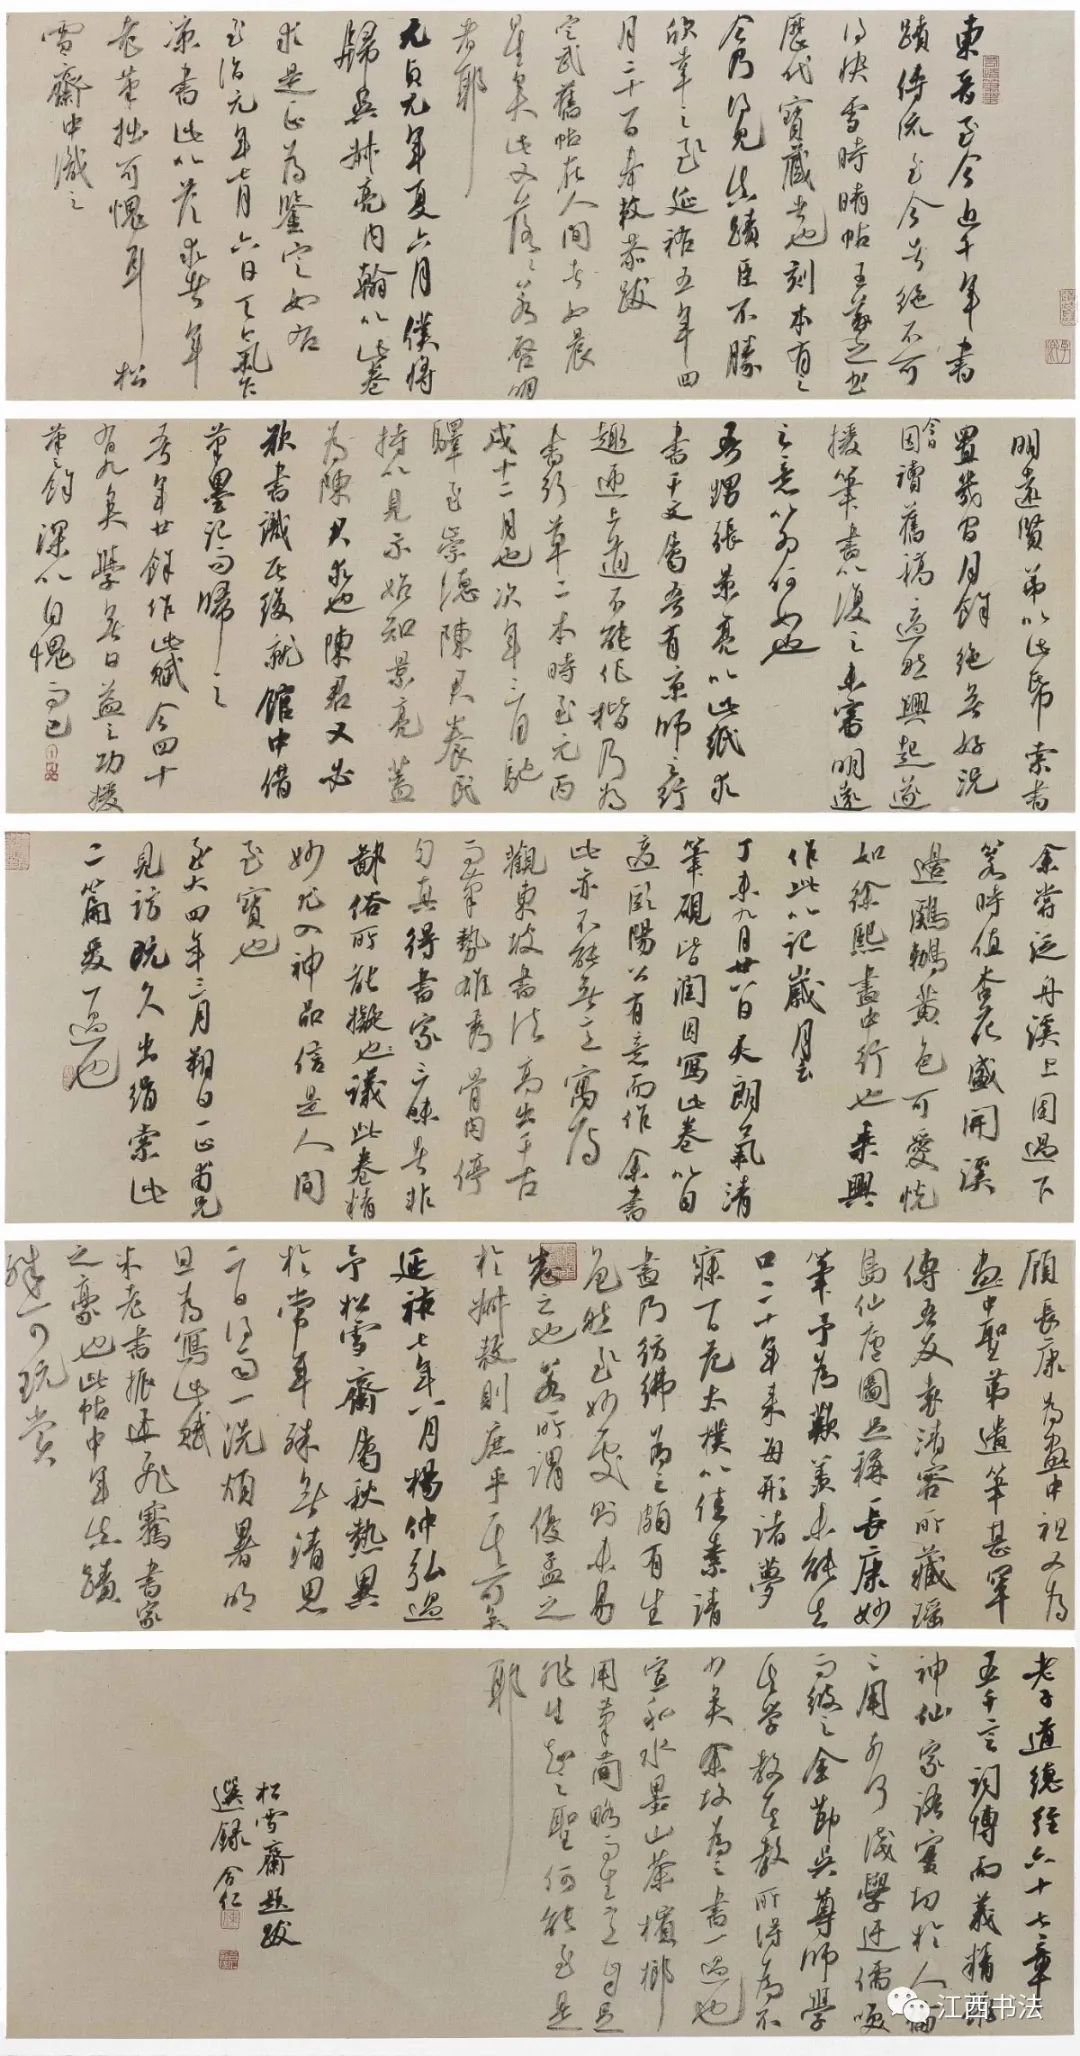 東晉至今近千年書
蹟傳流至今者絕不可
得快雪時晴帖王羲之書
歷代寶藏者也刻本有之
今乃得見真蹟臣不勝
欣幸之至延祐五年四
月二十一日孟頫恭跋
定武舊帖在人間者如晨
星矣此又落落若啓明
者耶
元貞元年夏六月僕將
歸吳興亮內翰以此卷
求是正為鑒定如右
至治元年七月六日天氣乍
涼書此以答
老筆拙可愧耳 松
雪齋中識之
明遠賢弟以此帋索書
置幾間月餘絕無好況
因讀舊稿適然興起遂
援筆書以復之未審明遠
之意以為何如也
吾甥張景亮以此紙求
書千文屬吾有京師之行
趣迫上道不能作楷乃為
書行草二本時至元丙
戌十二月也次年三月馳
驛至崇德陳君養民
持以見示始知景亮蓋
為陳君求也陳君又必
欲書識其後就館中借
筆墨記而歸之
吾年廿餘作此賦今四十
有九矣學無日益之功援
筆之餘深以自愧而已
余嘗泛舟溪上因過下
箬時值杏花盛開溪
邊鸂鶒黃色可愛恍
如徐熙畫中行也乘興
作此以記歲月云
丁未九月廿八日天朗氣清
筆硯皆潤因寫此卷以自
適歐陽公有意而作余書
此亦不能無意寓焉
觀東坡書法高出千古
而筆勢雄秀骨肉停
勻真得書家三昧者非
鄙俗所能擬也議此卷精
妙尤入神品信是人間
至寶也
至大四年三月朔日一正甫兄
見訪玩久出絹索此
二篇爰一過也
顧長康為畫中祖又為
畫中聖第遺筆甚罕
傳吾友袁清容所藏瑤
島仙廬圖足稱長康妙
筆予為歎羨未能去
口二十年來每形諸夢
寐百范太樸以佳素請
畫乃彷彿為之頗有生
色然至妙處則未易
衷之也若所謂優孟之
於叔敖則庶乎其可矣
延祐七年八月楊仲弘過
予松雪齋屬秋熱異
於常年殊無清思
二日得雨一洗煩暑明
旦為寫此賦
米老書振迅飛騫書家
之豪也此帖中年真蹟
殊可玩賞
老子道德經六十七章
五千言詞博而義精雖
神仙家語實切於人倫
而彼之全節吳尊師學
其學教其教所得為不
少矣余故為之書一過也
宣和水墨山茶檳榔
用筆簡略而生意自足
非生知之聖何能至是
耶
松雪齋題跋
選錄 合仁
江西书法